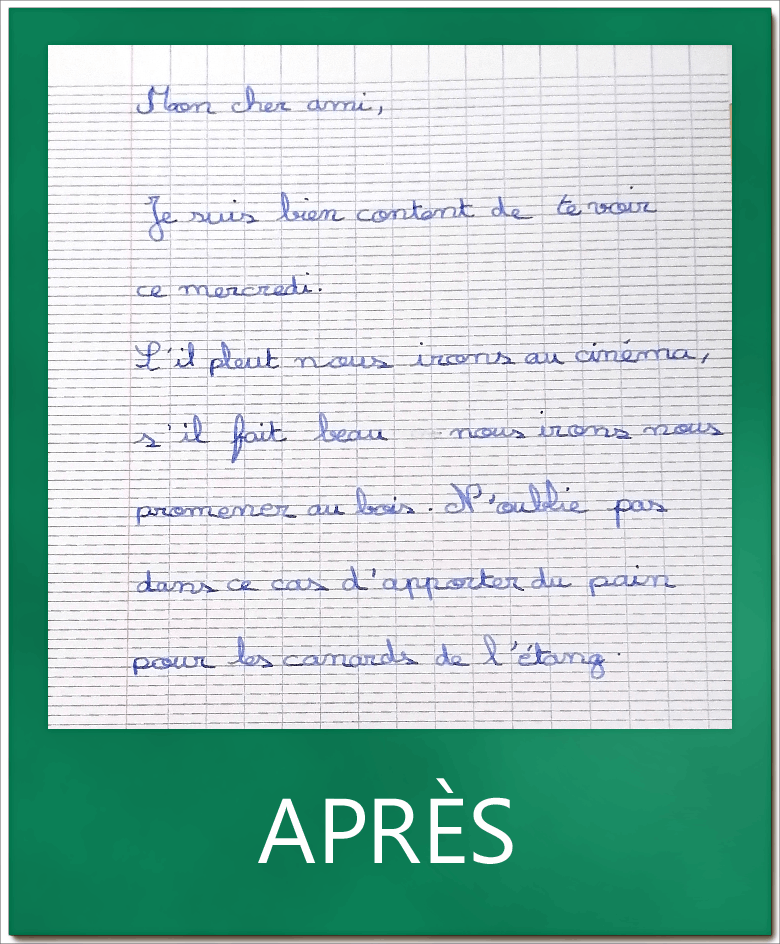 Mon cher ami,
Je suis bien content de te voir
ce mercredi.
S'il pleut nous irons au cinéma,
s'il fait beau nous irons nous
promener au bois. N'oublie pas
dans ce cas d'apporter du pain
pour les canards de l'étang.
APRÈS